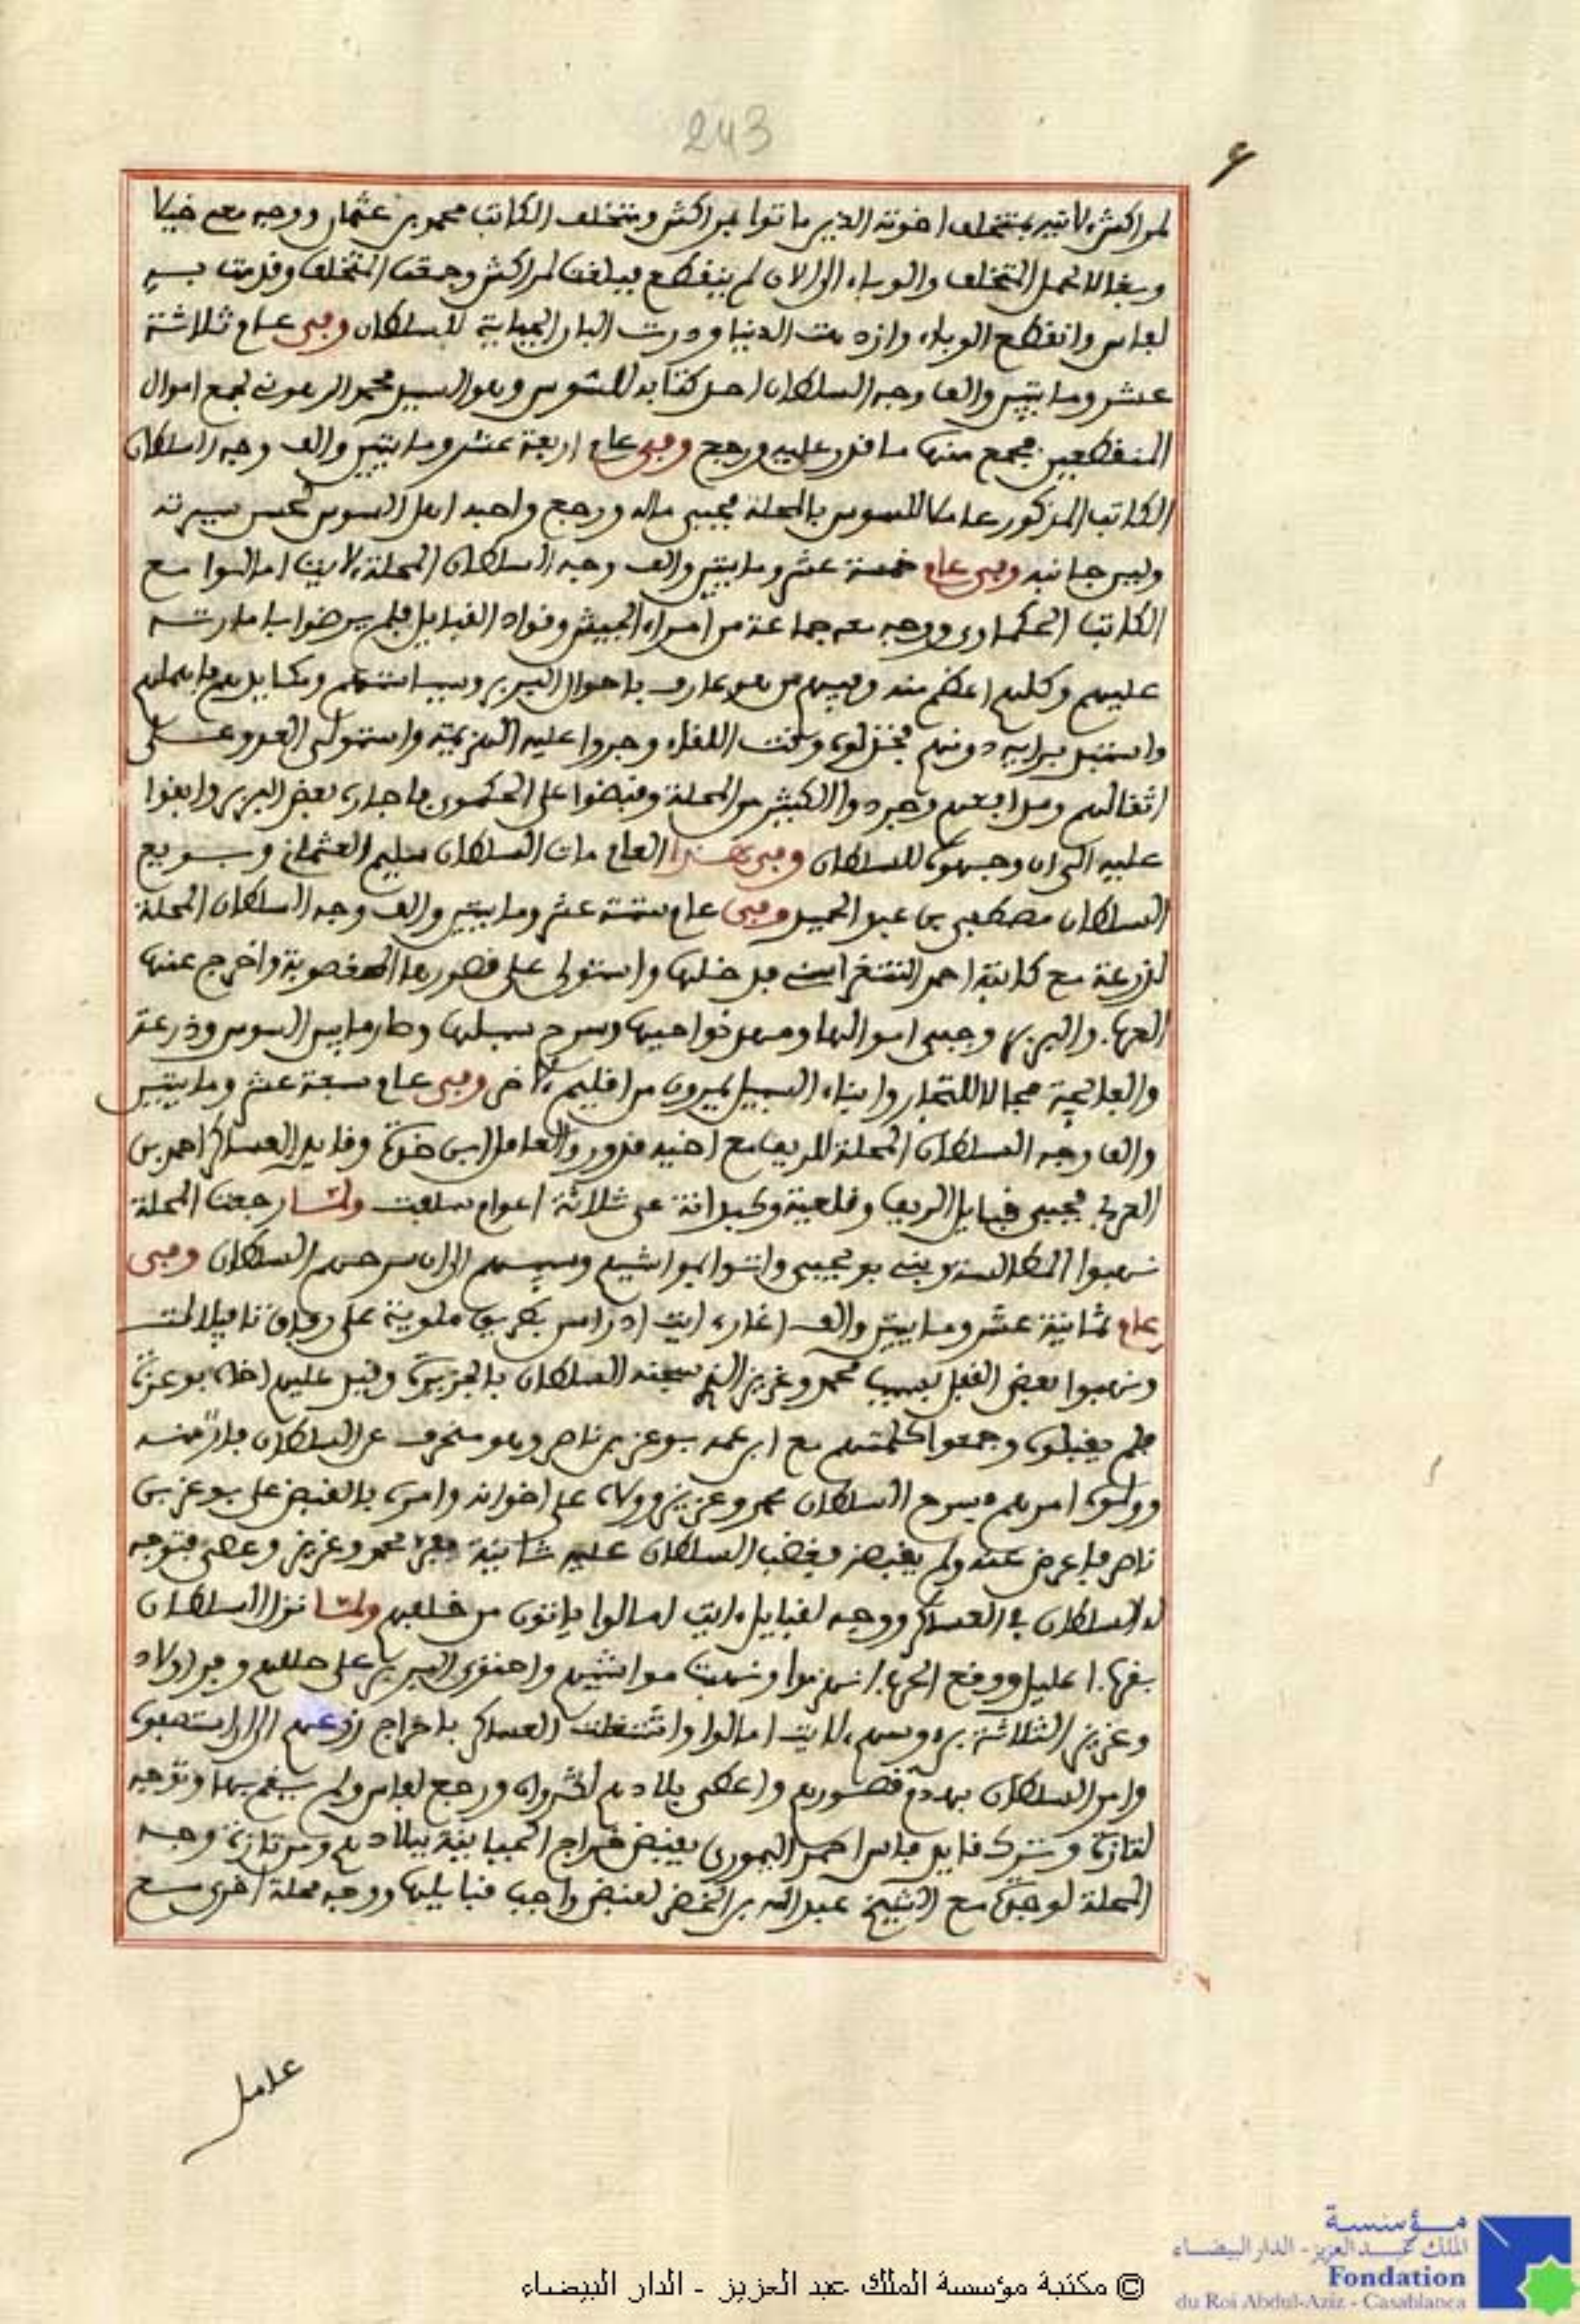 243
لمراكش لاتيه بمتخلف اخوته الذين ماتوا بمراكش ومتخلف الكاتب محمد بن عثمان ووجه معه خيلا
وبغالا لحمل المتخلف والوباء الى الان لم ينقطع فبلغت لمراكش وجمعت المتخلف وقدمت به
لفاس وانقطع الوباء وازدهت الدنيا ودرت البار الجباية للسلطان وفي عام ثلاثة
عشر ومايتين والف وجه السلطان احد كتابه للسوس وهو السيد محمد الرهوني لجمع اموال
المنقطعين فجمع منها ما قدر عليه ورجع وفي عام اربعة عشر ومايتين والف وجه السلطان
الكاتب المذكور عاملا للسوس بالمحلة فجبى ماله ورجع واحبه اهل السوس لحسن سيرته
ولين جانبه وفي عام خمسة عشر ومايتين والف وجه السلطان المحلة لايت امالوا مع
الكاتب الحكماوي ووجه معه جماعة من امراء الجيش وقواد القبايل فلم يرضوا بامارته
عليهم وكلهم اعظم منه وفيهم من هو عارف باحوال البربر وسياستهم ومكايدهم فاهملهم
واستبد برايه دونهم فخذلوه وقت اللقاء وجروا عليه الهزيمة واستولى العدو على
اثقالهم ومدافعهم وجردوا الكثير من المحلة وقبضوا على الحكموي فاجاره بعض البربر وابقوا
عليه الى ان وجهوه للسلطان وفي هذا العام مات السلطان سليم العثماني وبويع
السلطان مصطفى بن عبد الحميد وفي عام ستة عشر ومايتين والف وجه السلطان المحلة
لدرعة مع كاتبه احمد التتغراسني فدخلها واستولى على قصورها المغصوبة واخرج عنها
العرب والبربر وجبى اموالها ومهد نواحيها وسرح سبلها وصار ما بين السوس وذرعة
والفايجة مجالا للتجار وابناء السبيل يمرون من اقليم لاخر وفي عام سبعة عشر ومايتين
والف وجه السلطان المحلة للريف مع اخيه قدور والعامل ابن خدة وقايد العساكر احمد بن
العربي فجبى قبايل الريف وقلعية وكبدانة عن ثلاثة اعوام سلفت ولما رجعت المحلة
نهبوا المطالسة وبني بو يحيى واتوا بمواشيهم وسبيهم الى ان سرحهم السلطان وفي
عام ثمانية عشر ومايتين والف اغار ايت ادراسن بطريق ملوية على رفاق تافيلالت
ونهبوا بعض القفل بسبب محمد وعزيز الذي سجنه السلطان بالجزيرة وقبل عليهم اخاه بوعزة
فلم يقبلوه وجمعوا كلمتهم مع ابن عمه بوعزة بن ناصر وهو منحرف عن السلطان فار منه
وولوه امرهم فسرح السلطان محمد وعزيز وولاه على اخوانه وامره بالقبض على بوعز بن
ناصر فاعرض عنه ولم يقبضه فغضب السلطان عليه ثانية ففر محمد وعزيز وعصى فتوجه
له السلطان في العساكر ووجه لقبايل ايت امالوا ياتون من خلفهم ولما نزل السلطان
بقرب اعليل ووقع الحرب انهزموا ونهبت مواشيهم واحتوى البربر على حللهم وفر اولاد
وعزيز الثلاثة برءوسهم لايت امالوا واشتغلت العساكر باخراج زرعهم الى ان استصفوه
وامر السلطان بهدم قصورهم واعطى بلادهم لڭروان ورجع لفاس ولم يقم بها وتوجه
لتازة وترك قايد فاس احمد اليموري يقبض خراج الحياينة ببلادهم ومن تازة وجه
المحلة لوجدة مع الشيخ عبد الله بن الخضر لقبض واجب قبايلها ووجه محلة اخرى مع
عامل
© مكتبة مؤسسة الملك عبد العزيز - الدار البيضاء
مؤسسة
الملك عبد العزيز - الدار البيضاء
Fondation
du Roi Abdul-Aziz - Casablanca